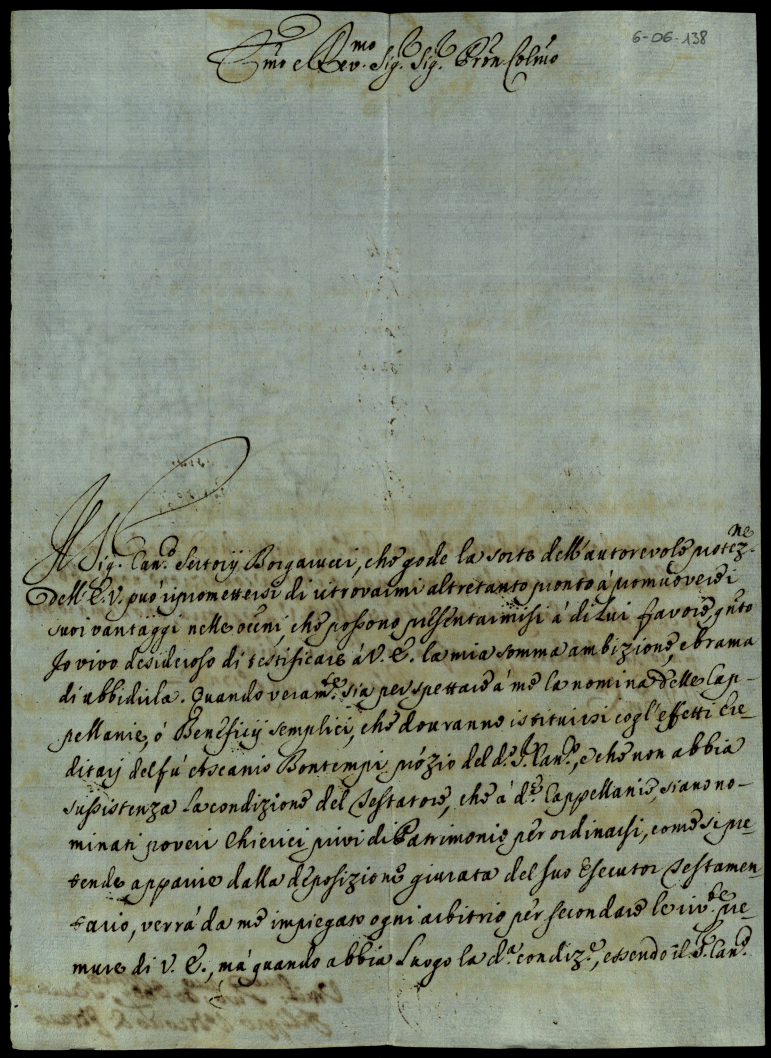 6-06-138
E.mo e Rev.mo Sig.r Sig.r Pron Colmo
Il Sig.r Can.co Sertorij Borgarucci, che gode la sorte dell'autorevole protez.ne
dell'E.V. può ripromettersi di ritrovarmi altretanto pronto à promuovere i
suoi vantaggi nelle occ.ni, che possono presentarmisi à di Lui favore, q.nto
Io vivo desideroso di testificare à V. E. la mia somma ambizione, e brama
di ubbidirla. Quando veram.te sia per spettare à me la nomina delle Cap-
pellanie, ò Beneficij semplici, che dovranno istituirsi cogl'effetti ere-
ditarij del fù Ascanio Bontempi prozio del d.o S.r Can.co, e che non abbia
sussistenza la condizione del Testatore, che à d.e Cappellanie, siano no-
minati poveri Chierici privi di Patrimonio per ordinarsi, come si pre-
tende apparire dalla deposizione giurata del suo Esecutor Testamen-
tario, verrà da me impiegato ogni arbitrio per secondare le riv.te pre-
mure di V. E., mà quando abbia Luogo la d.a condiz.e, essendo il S.r Can.co